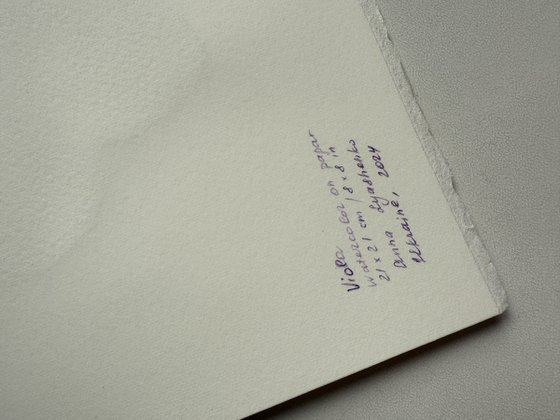 Viola
Watercolor on papar
21 x 21 cm / 8 x 8 in
Anna Lyashenko
Ukraine, 2024